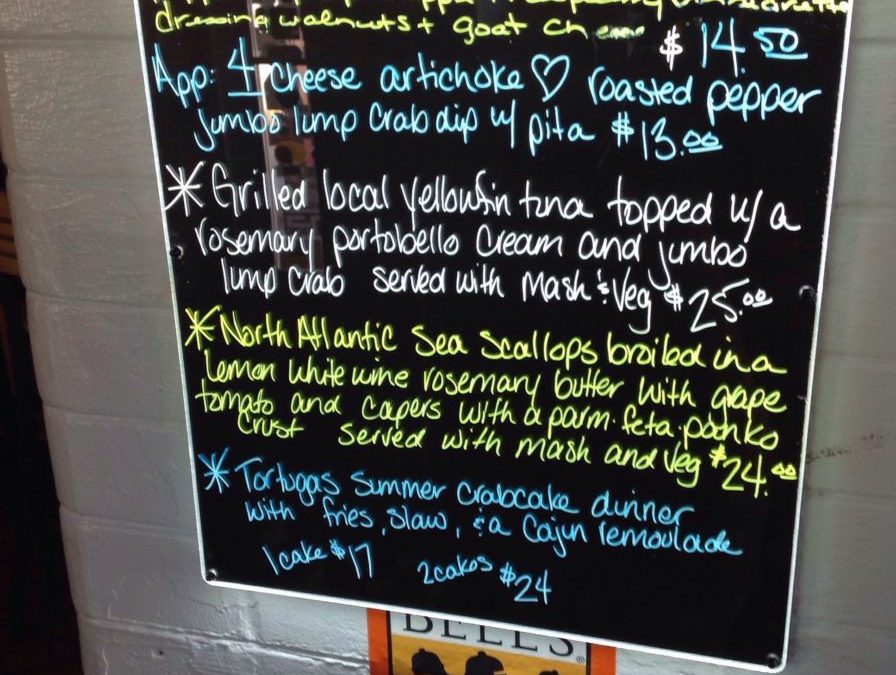 dressing walnuts + goat cheese
$14.50
App: 4 cheese artichoke ♡ roasted pepper
jumbo lump crab dip w/ pita $13.00
* Grilled local yellowfin tuna topped w/ a
rosemary portobello cream and jumbo
lump crab served with mash & veg $25.00
* North Atlantic Sea Scallops broiled in a
lemon white wine rosemary butter with grape
tomato and capers with a parm. feta. panko
crust served with mash and veg $24.00
* Tortugas Summer Crabcake dinner
with fries, slaw, & a Cajun remoulade
1 cake $17 2 cakes $24
BELL'S